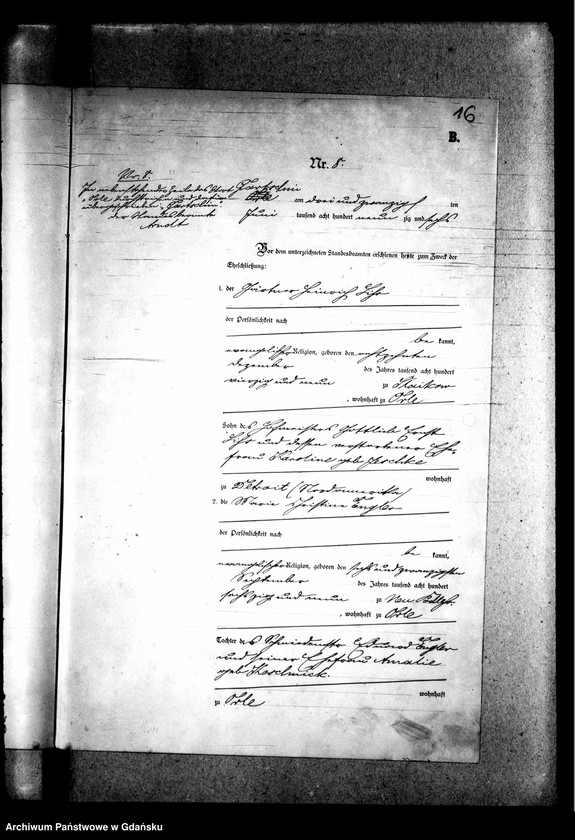 16
B.
Nr. 8.
Nr. 8.
der Standesbeamte
Arndt
am drei und zwanzigsten
Juni tausend acht hundert neun zig und sechs
Vor dem unterzeichneten Standesbeamten erschienen heute zum Zweck der
Eheschließung:
1. der Heinrich
der Persönlichkeit nach
be kannt,
evangelischer Religion, geboren den achtzehnten
Dezember des Jahres tausend acht hundert
vierzig und neun zu
, wohnhaft zu Orle
Sohn des Hofmeisters Gottlieb Ernst
und dessen verstorbener Ehe-
frau Karoline geb Jeschke
wohnhaft
zu Detroit (Nordamerika)
2. die Marie Christine Engler
der Persönlichkeit nach
be kannt,
evangelischer Religion, geboren den sechs und zwanzigsten
September des Jahres tausend acht hundert
sechszig und neun zu Neu
, wohnhaft zu Orle
Tochter des Eduard Engler
und seiner Ehefrau Amalie
geb
wohnhaft
zu Orle
Archiwum Państwowe w Gdańsku